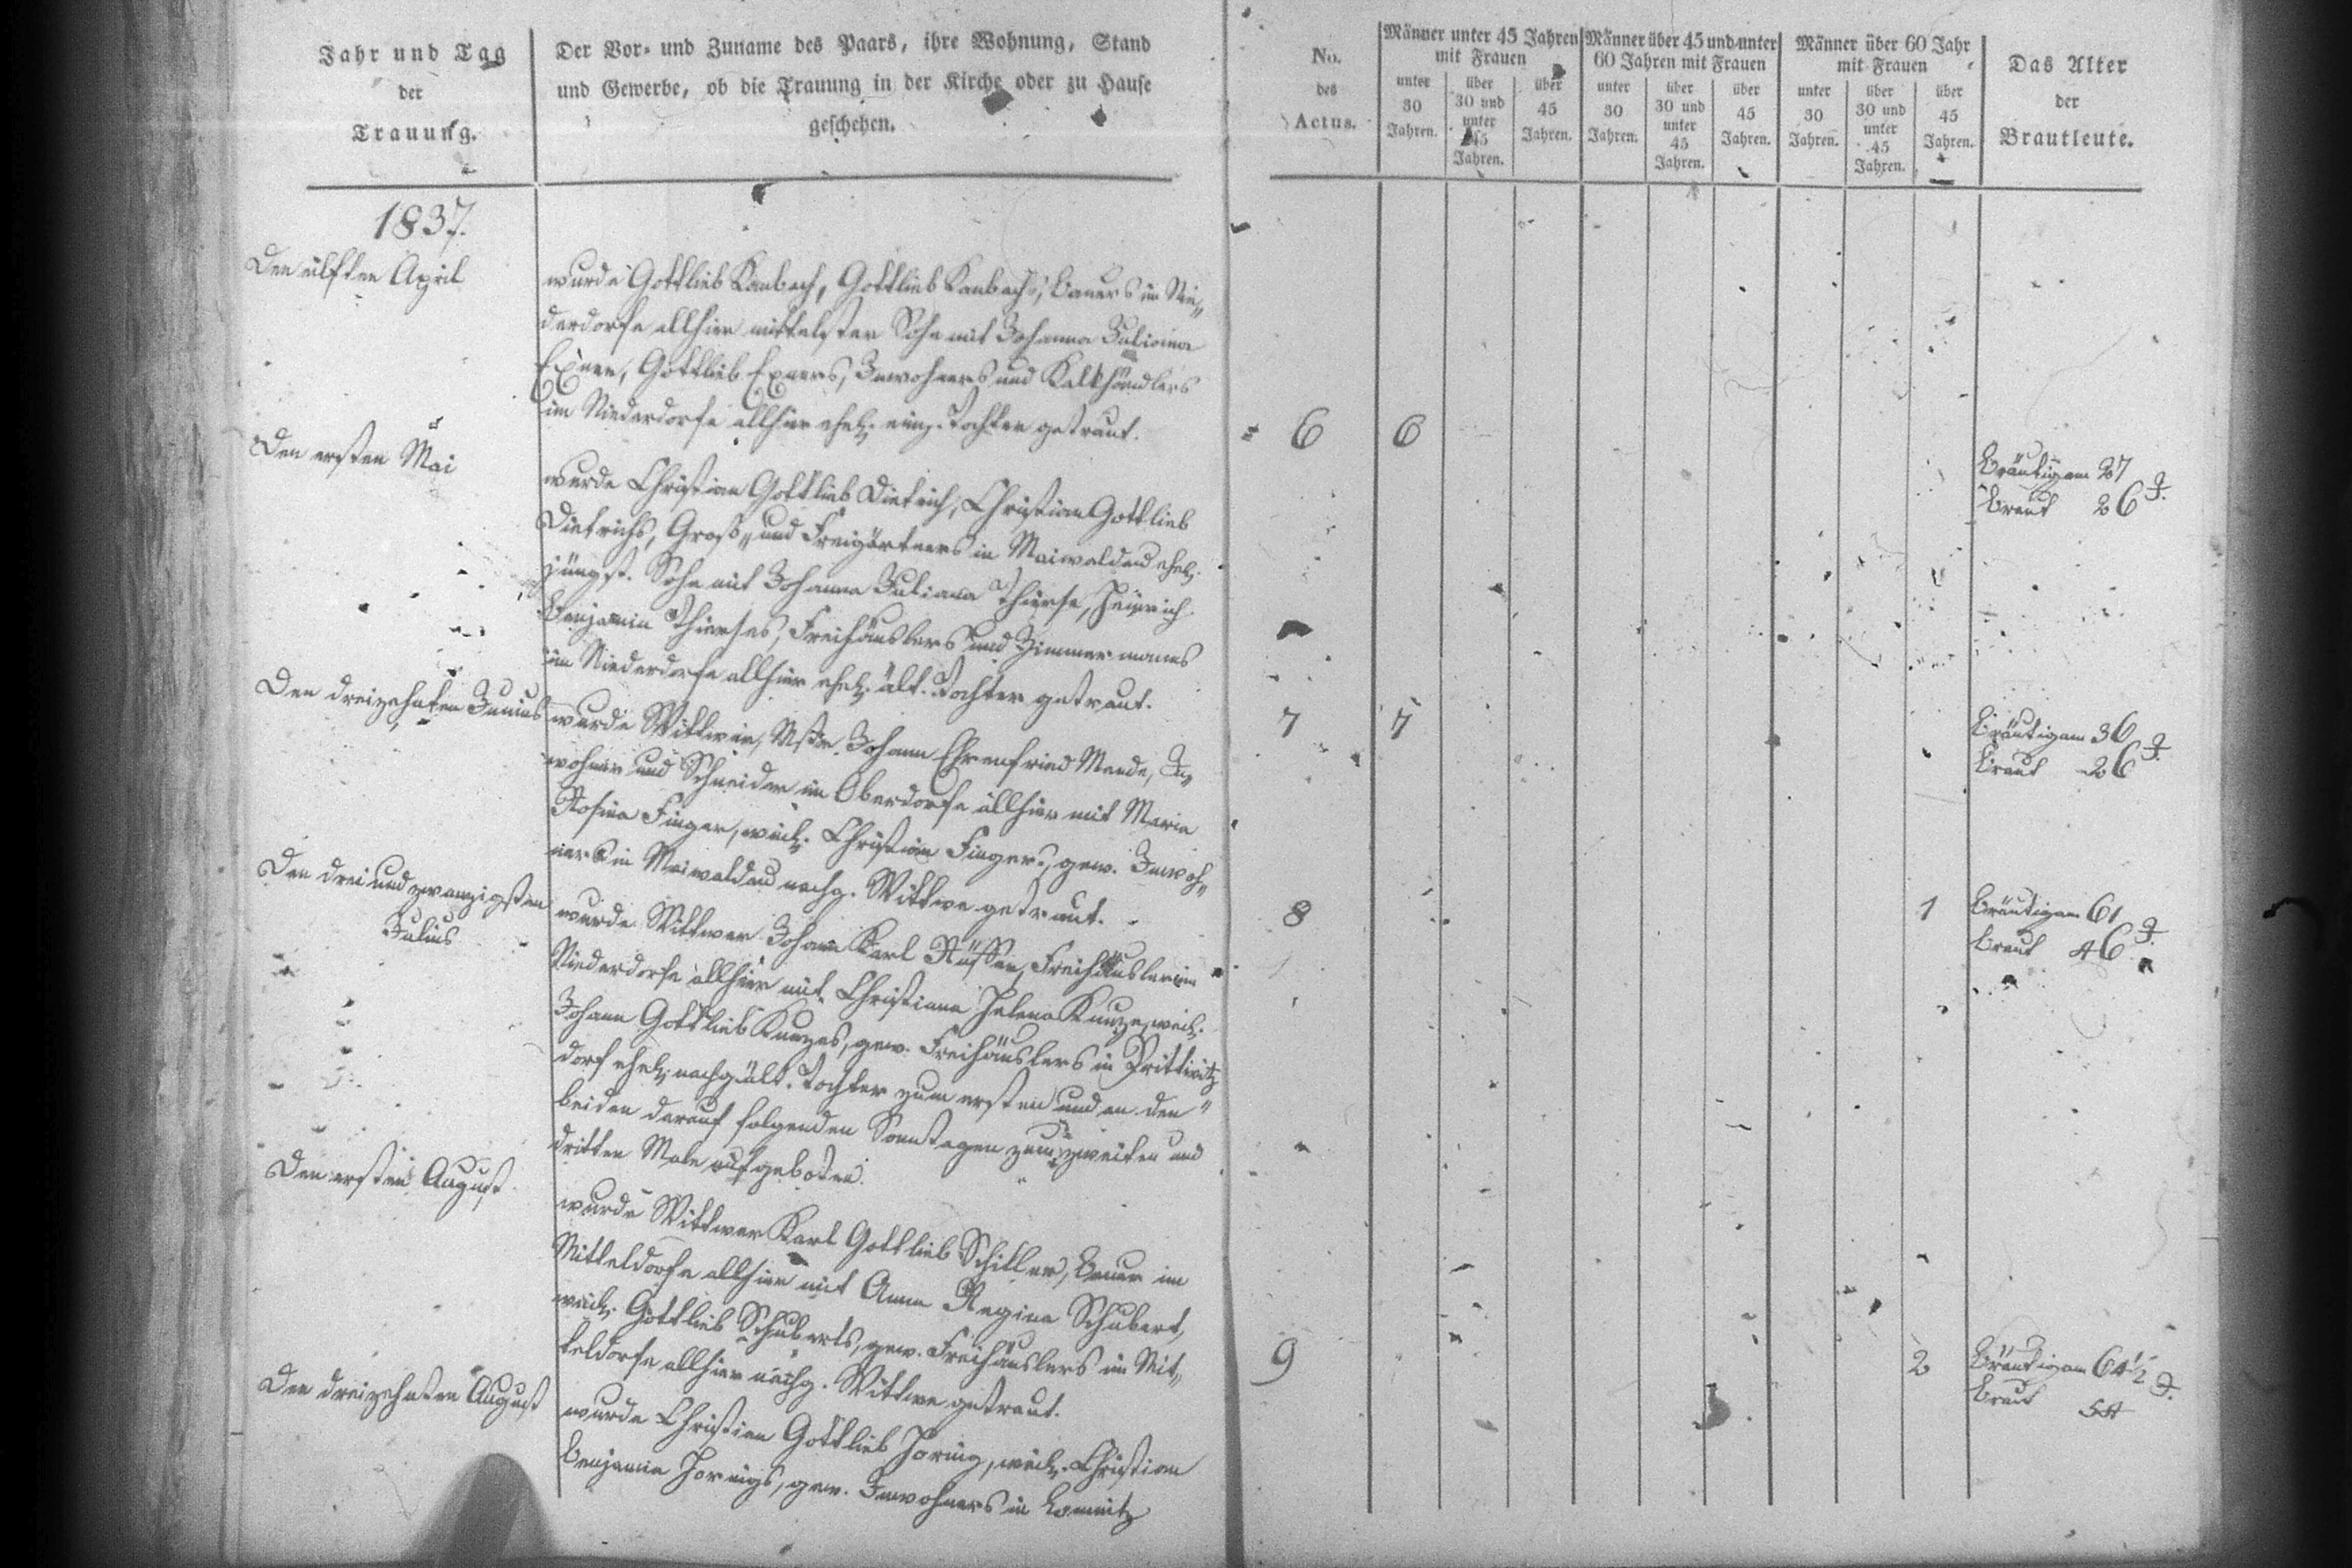 Jahr und Tag
der
Trauung.
Der Vor- und Zuname des Paars, ihre Wohnung, Stand
und Gewerbe, ob die Trauung in der Kirche oder zu Hause
geschehen.
No.
des
Actus.
Männer unter 45 Jahren
mit Frauen
unter
30
Jahren.
über
30 und
unter
45
Jahren.
über
45
Jahren.
Männer über 45 und unter
60 Jahren mit Frauen
unter
30
Jahren.
über
30 und
unter
45
Jahren.
über
45
Jahren.
Männer über 60 Jahr
mit Frauen
unter
30
Jahren.
über
30 und
unter
45
Jahren.
über
45
Jahren.
Das Alter
der
Brautleute.
1837.
Den eilften April
wurde Gottlieb Kambach, Gottlieb Kambachs, Bauers im Nie„
derdorfe allhier mittelster Sohn mit Johanna Juliana
Exner, Gottlieb Exners, Inwohners und Kalkhändlers
im Niederdorfe allhier ehel. einz. Tochter getraut.
6 6
Bräutigam 27
Braut 26 J.
Den ersten Mai
wurde Christian Gottlieb Dietrich, Christian Gottlieb
Dietrichs, Groß„ und Freigärtners in Maiwaldau ehel.
jüngst. Sohn mit Johanna Juliana Thierse, Heinrich
Benjamin Thierses, Freihäuslers und Zimmermanns
im Niederdorfe allhier ehel. ält. Tochter getraut.
7 7
Bräutigam 36
Braut 26 J.
Den dreizehnten Junius
wurde Wittwer, Mstr. Johann Ehrenfried Mende, In„
wohner und Schneider im Oberdorfe allhier mit Maria
Rosina Finger, weil. Christian Fingers, gew. Inwoh„
ners in Maiwaldau nachg. Wittwe getraut.
8 1
Bräutigam 61
Braut 46 J.
Den drei und zwanzigsten
Julius
wurde Wittwer Johann Karl Rüffer, Freihäusler im
Niederdorfe allhier mit Christiana Helena Kunze, weil.
Johann Gottlieb Kunzes, gew. Freihäuslers in Prittwitz„
dorf ehel. nachg. ält. Tochter zum ersten und an den
beiden darauf folgenden Sonntagen zum zweiten und
dritten Male aufgeboten.
Den ersten August
wurde Wittwer Karl Gottlieb Schiller, Bauer im
Mitteldorfe allhier mit Anna Regina Schubert,
weil. Gottlieb Schuberts, gew. Freihäuslers im Mit„
teldorfe allhier nachg. Wittwe getraut.
9 2
Bräutigam 64½
Braut 54 J.
Den dreizehnten August
wurde Christian Gottlieb Hornig, weil. Christian
Benjamin Hornigs, gew. Inwohners in Lomnitz